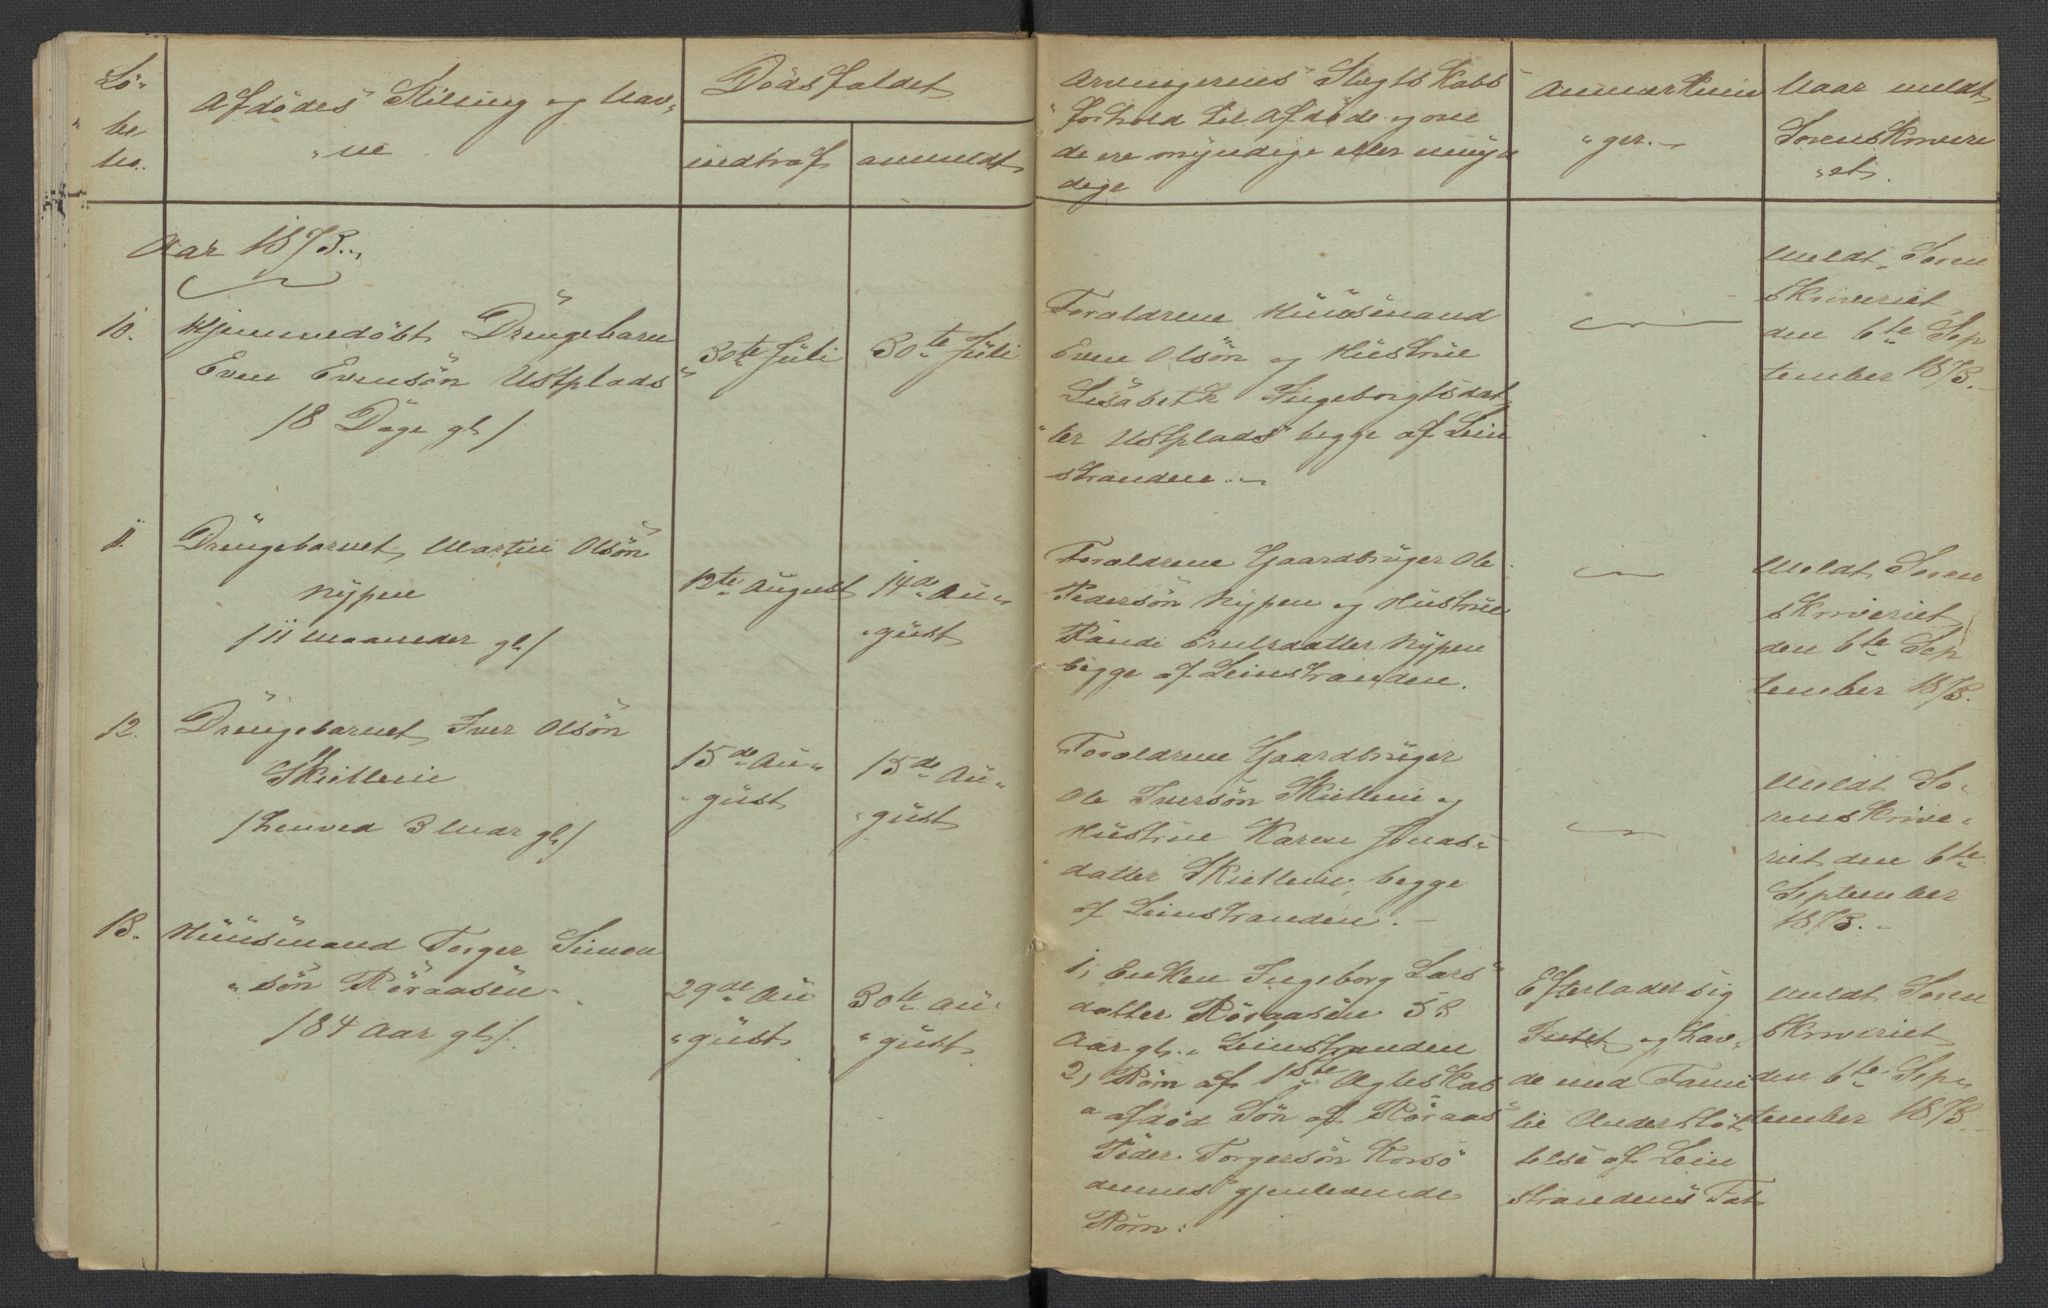 Lö-
be
No.
Afdödes Stilling og Nav-
"ne
Dödsfaldet
indtraf
anmeldt
Arvingernes Slægtskabs
forhold til Afdöde og om
de ere myndige eller umyn
dige
Anmærknin
"ger.
Naar meldt
Sorenskrivere
"et.
Aar 1873.
10.
Hjemmedöbt Drengebarn
Even Evensön Ustplads
/18 Dage gl/
30te Juli
30te Juli
Foraldrene Huusmand
Even Olsön og Hustrue
Lisabeth Ingeborgtsdat
"ter Ustplads begge af Lein
stranden.
Meldt Soren
skriveriet
den 6te Sep
tember 1873.
11.
Drengebarnet Martin Olsön
Nypen
/11 Maaneder gl/
12te August
14de Au-
"gust
Foraldrene Gaardbruger Ole
Pedersön Nypen og Hustrue
Randi Arntsdatter Nypen
begge af Leinstranden.
Meldt Soren
skriveriet
den 6te Sep
tember 1873.
12.
Drengebarnet Iver Olsön
Skjetlein
/henved 3 Mdr gl/
15de Au-
"gust
15de Au-
"gust
Foraldrene Gaardbruger
Ole Iversön Skjetlein og
Hustrue Karen Jonas-
datter Skjetlein, begge
af Leinstranden.
Meldt So-
renskrive-
riet den 6te
September
1873.
13.
Huusmand Torger Simon
"sön Röraasen
/84 Aar gl/.
29de Au
"gust
30te Au-
"gust
1, Enken Ingeborg Lars
datter Röraasen 58
Aar gl., Leinstranden
2, Börn af 1ste Ægteskab
"afdöd Sön af Röraas
Peder Torgersön Korsö
dennes gjenlevende
Börn:
Efterlader sig
Intet og hav-
de med Fami
lie Understöt
telse af Lein
strandens Fat
Meldt Soren
skriveriet
den 6te Sep-
tember 1873.